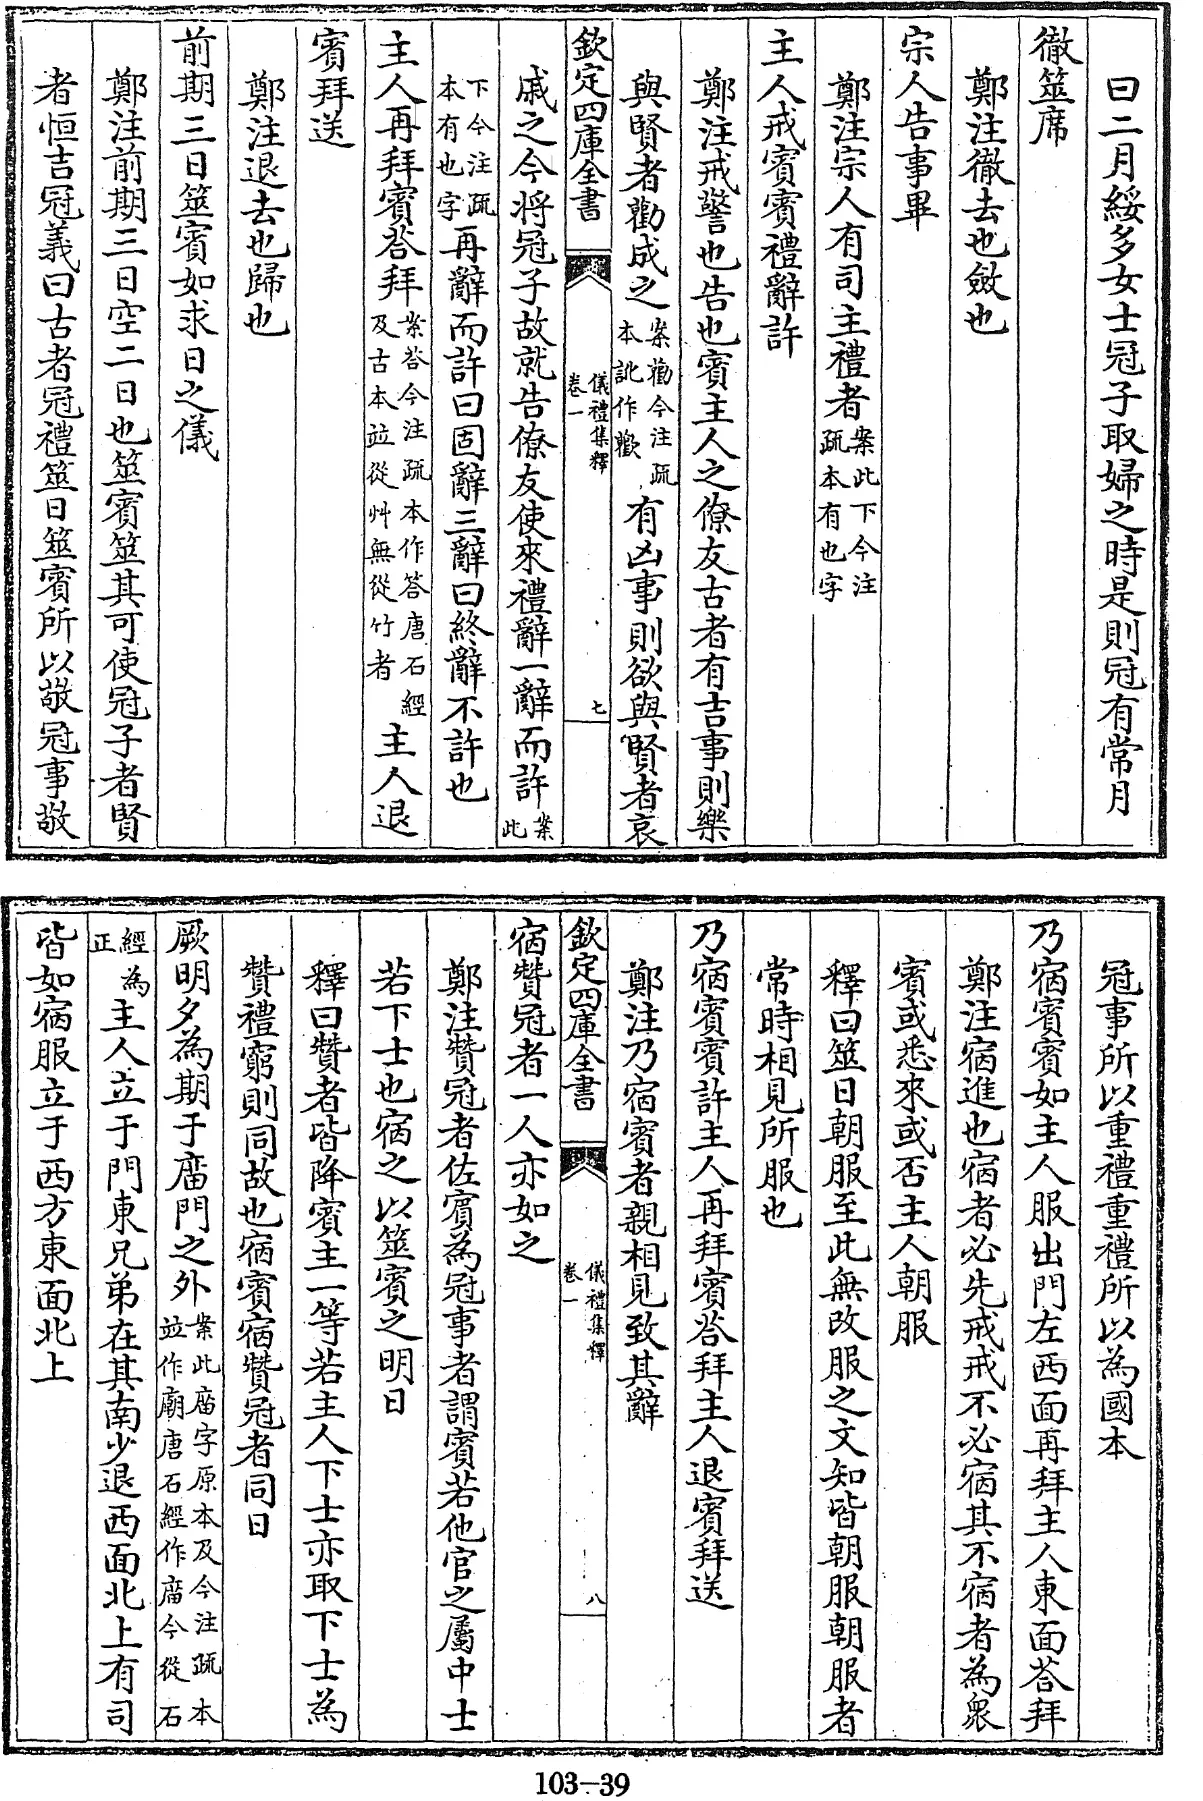 曰二月綏多女士冠子取婦之時是則冠有常月
徹筮席
鄭注徹去也斂也
宗人告事畢
鄭注宗人有司主禮者案此下今注疏本有也字
主人戒賓賓禮辭許
鄭注戒警也告也賓主人之僚友古者有吉事則樂
與賢者勸成之案勸今注疏本訛作歡有凶事則欲與賢者哀
欽定四庫全書 儀禮集釋 卷一 七
戚之今將冠子故就告僚友使來禮辭一辭而許案此
下今注疏本有也字再辭而許曰固辭三辭曰終辭不許也
主人再拜賓荅拜案荅今注疏本作答唐石經及古本竝從艸無從竹者主人退
賓拜送
鄭注退去也歸也
前期三日筮賓如求日之儀
鄭注前期三日空二日也筮賓筮其可使冠子者賢
者恒吉冠義曰古者冠禮筮日筮賓所以敬冠事敬
冠事所以重禮重禮所以為國本
乃宿賓賓如主人服出門左西面再拜主人東面荅拜
鄭注宿進也宿者必先戒戒不必宿其不宿者為衆
賓或悉來或否主人朝服
釋曰筮日朝服至此無改服之文知皆朝服朝服者
常時相見所服也
乃宿賓賓許主人再拜賓荅拜主人退賓拜送
鄭注乃宿賓者親相見致其辭
欽定四庫全書 儀禮集釋 卷一 八
宿贊冠者一人亦如之
鄭注贊冠者佐賓為冠事者謂賓若他官之屬中士
若下士也宿之以筮賓之明日
釋曰贊者皆降賓主一等若主人下士亦取下士為
贊禮窮則同故也宿賓宿贊冠者同日
厥明夕為期于庿門之外案此庿字原本及今注疏本竝作廟唐石經作庿今從石
經為正主人立于門東兄弟在其南少退西面北上有司
皆如宿服立于西方東面北上
103-39